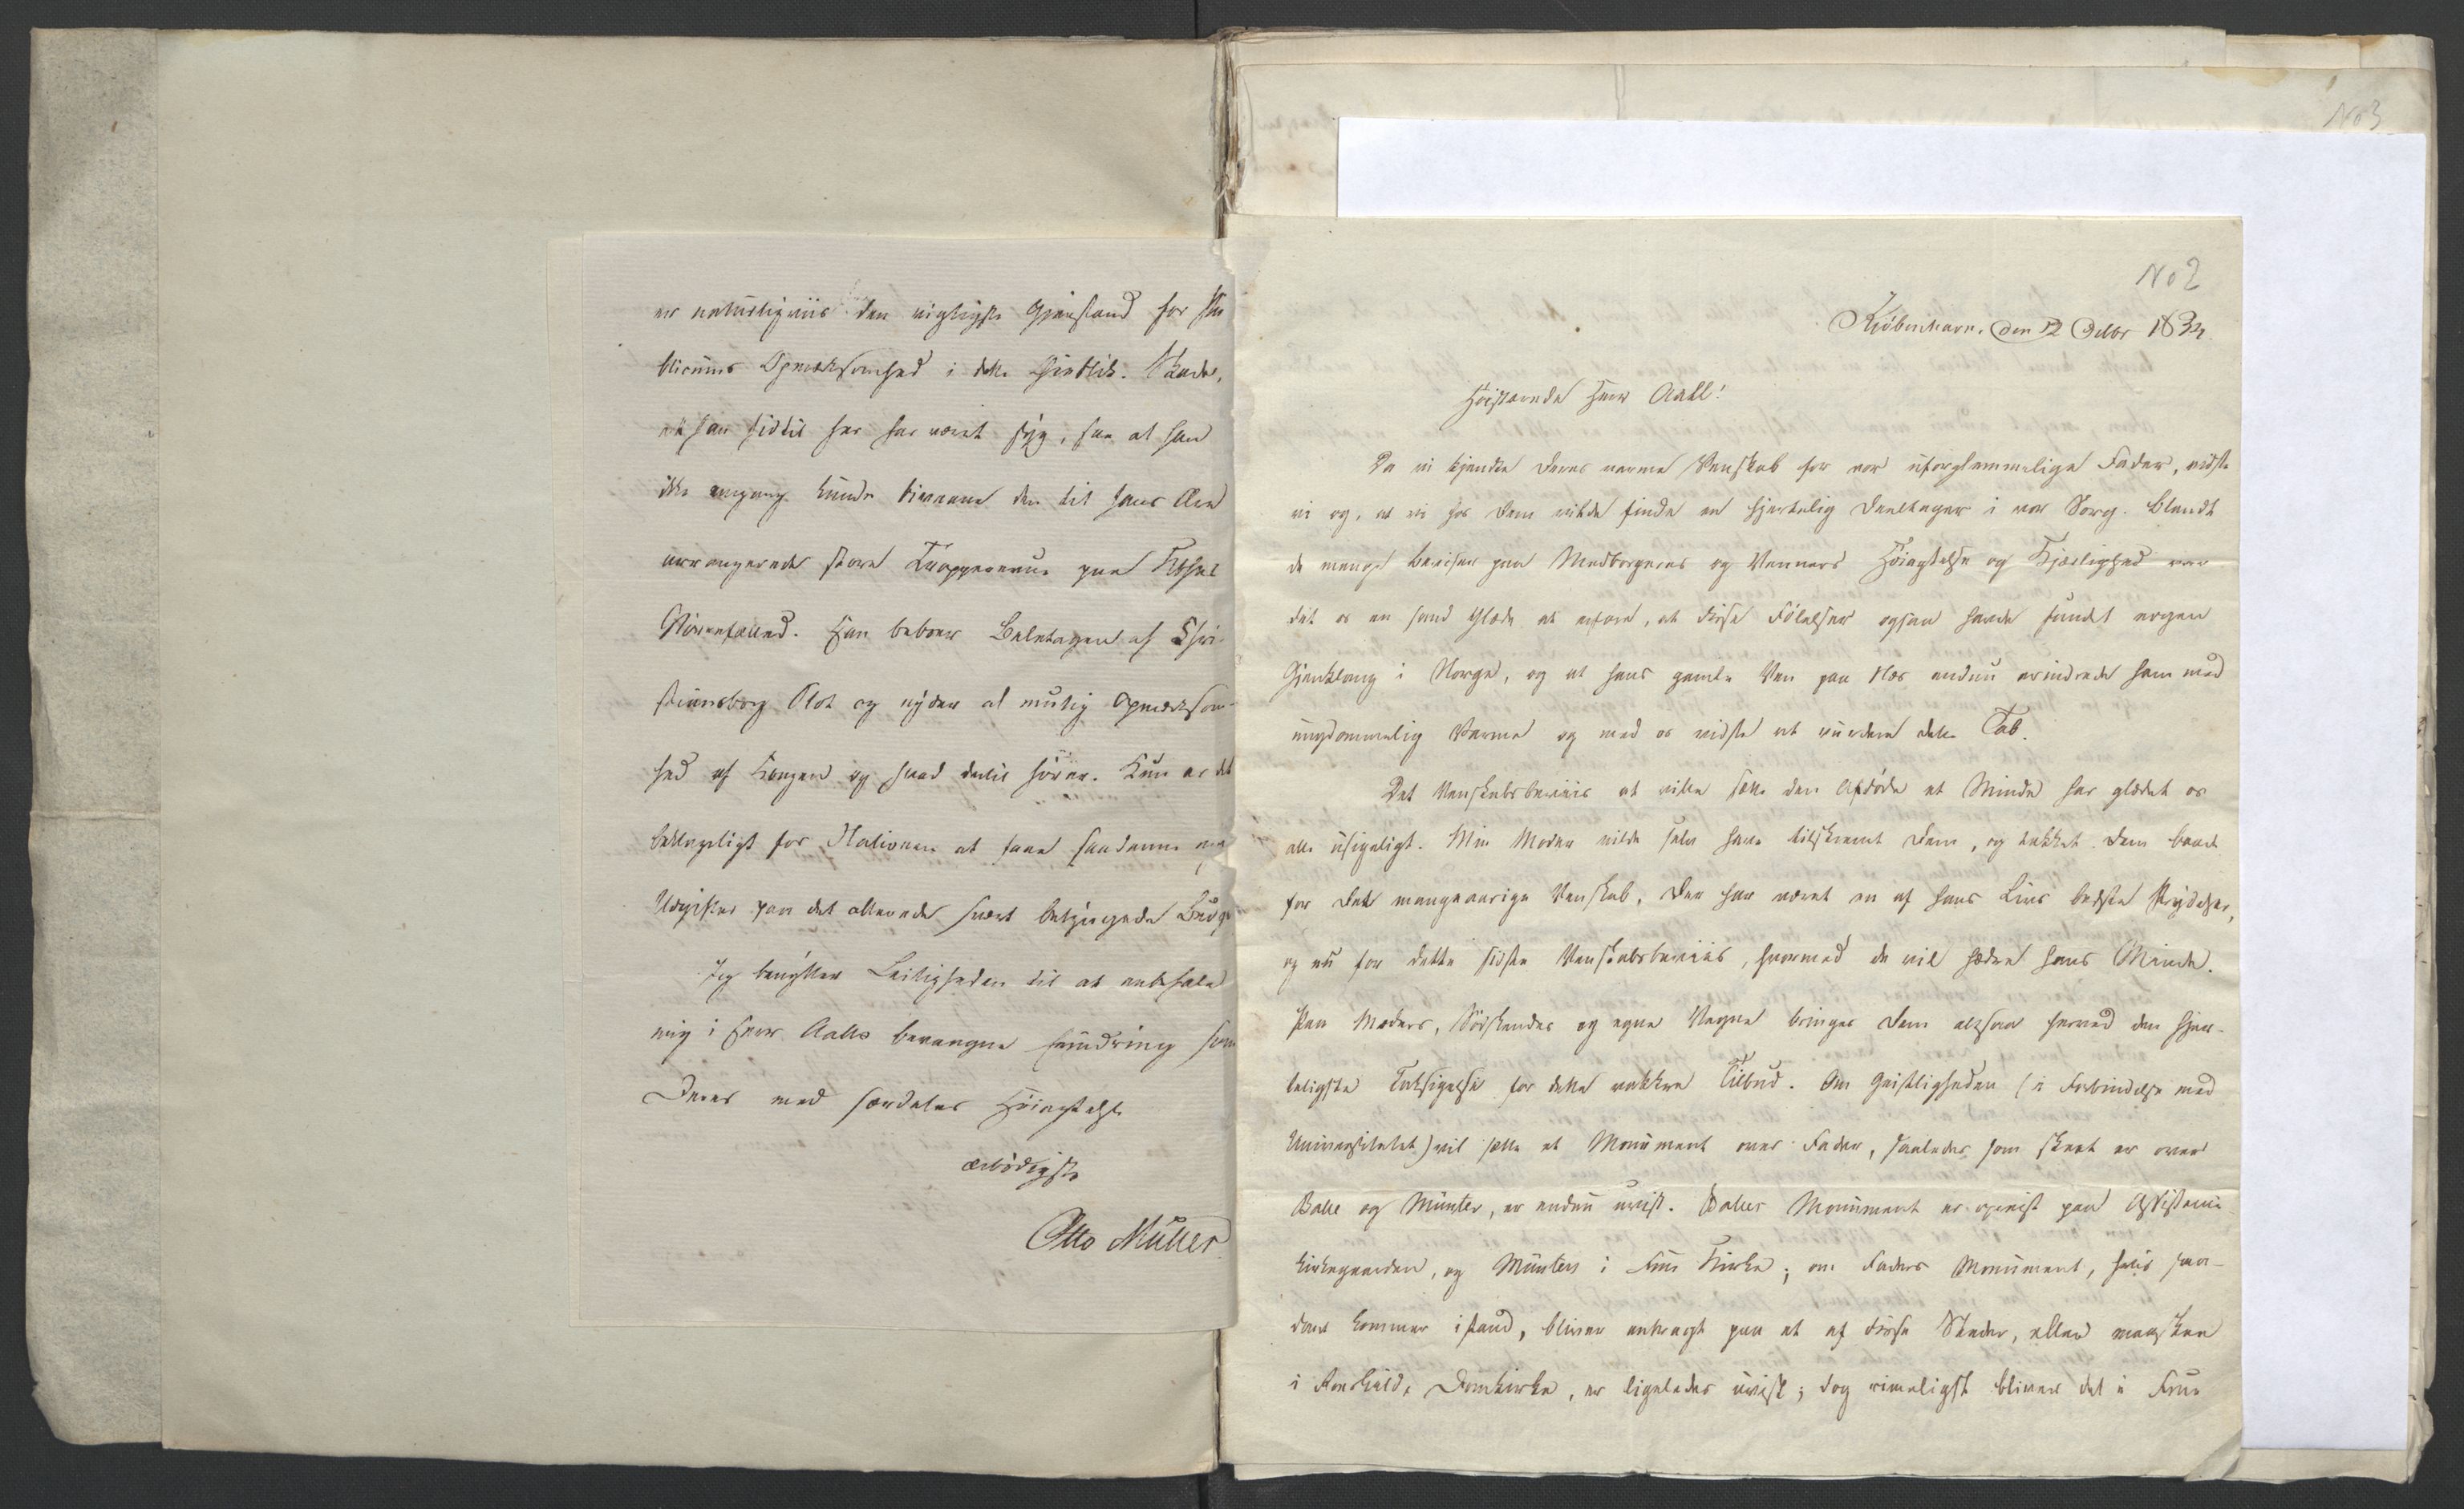 er naturligviis den vigtigste Gjenstand for Pu
blicums Opmærksomhed i dette Øieblik. Skade,
at han hidtil her har været syg, saa at han
ikke engang kunde bivaane den til hans Ære
arrangerede store Troppe paa
Nørrefælled. Han beboer Beletagen af Chri-
stiansborg Slot og nyder al mulig Opmærksom-
hed af Kongen og hvad dertil hører. Kun er det
beklageligt for Nationen at faae saadanne nye
Udgifter paa det allerede svært betyngede Budget
Jeg benytter Leiligheden til at anbefale
mig i Herr Aalls bevaagne Erindring som
Deres med særdeles Høiagtelse
ærbødigste
Otto Müller
No 3
No 2
Kiöbenhavn. den 12 Octbr 1834.
Høistærede Herr Aall!
Da vi kjendte Deres varme Venskab for vor uforglemmelige Fader, vidste
vi og, at vi hos Dem vilde finde en hjertelig Deeltager i vor Sorg. Blandt
de mange Beviser paa Medborgeres og Venners Høiagtelse og Kjærlighed var
det os en sand Glæde at erfare, at disse Følelser ogsaa havde fundet nogen
Gjenklang i Norge, og at hans gamle Ven paa Næs endnu erindrede ham med
ungdommelig Varme og med os vidste at vurdere dette Tab.
Det Venskabsbeviis at ville sætte den Afdøde et Minde har glædet os
alle usigeligt. Min Moder vilde selv have tilskrevet Dem, og takket Dem baade
for Det mangeaarige Venskab, Der har været en af hans Livs bedste Prydelser,
og nu for dette sidste Venskabsbeviis, hvormed de vil hædre hans Minde.
Paa Moders, Sødskendes og egne Vegne bringer Dem altsaa herved den hjer-
teligste Taksigelse for dette vakkre Tilbud. Om Geistligheden (i Forbindelse med
Universitetet) vil sætte et Monument over Fader, saaledes som skeet er over
Balle og Münter, er endnu uvist. Balles Monument er opreist paa Assistents-
kirkegaarden, og Münters i Frue Kirke; om Faders Monument, hvis saa-
dant kommer istand, bliver anbragt paa et af disse Steder, eller maaskee
i Roeskilde Domkirke, er ligeledes uvist; dog rimeligst bliver det i Frue